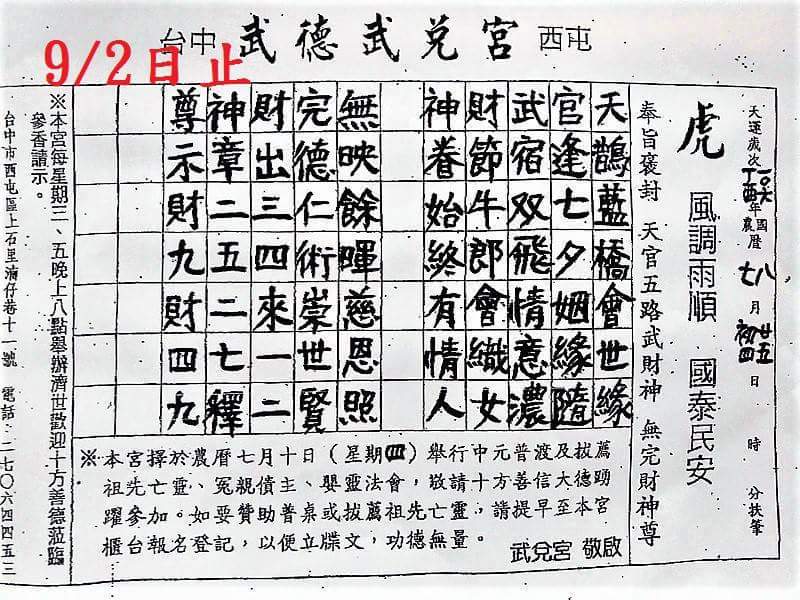 台中 武德武兌宮 西屯
9/2日止
天運歲次丁酉年國曆八月廿五日 時 分扶筆
農曆七月初四
虎 風調雨順 國泰民安
奉旨褒封 天官五路武財神 無完財神尊
天鵲藍橋會世緣
官逢七夕姻緣隨
武宿双飛情意濃
財節牛郎會織女
神眷始終有情人
無映餘暉慈恩照
完德仁術崇世賢
財出三四來一二
神章二五二七釋
尊示財九財四九
※本宮擇於農曆七月十日（星期四）舉行中元普渡及拔薦
祖先亡靈、冤親債主、嬰靈法會，敬請十方善信大德踴
躍參加。如要贊助普桌或拔薦祖先亡靈，請提早至本宮
櫃台報名登記，以便立牒文，功德無量。
武兌宮 敬啟
※本宮每星期三、五晚上八點舉辦濟世歡迎十方善德蒞臨
參香請示。
台中市西屯區上石里湳仔巷十一號 電話：二七〇六四四五三